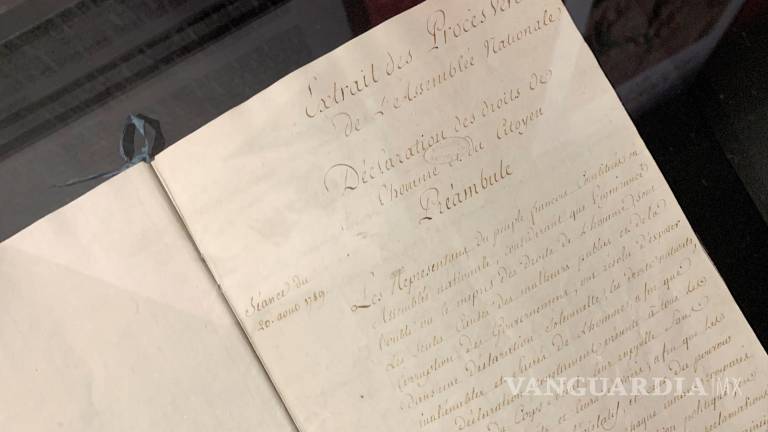 Extrait des Procès Ver
de L'Assemblée Nationale
Déclaration des droits de
l'homme et du Citoyen
Préambule
Séance du
20. août 1789.
Les Représentans du peuple françois Constitués en
Assemblée nationale, considérant que l'ignorance
l'oubli ou le mépris des droits de L'homme, sont
les seules causes des malheurs publics et de la
Corruption des Gouvernemens, ont résolu d'exposer
dans une déclaration solemnelle, les droits naturels,
inaliénables et sacrés de L'homme afin que
déclaration constamment présente à tous les
du Corps social, leur rappelle sans
et leurs afin que les
législatif, et du pouvoir
chaque instant comparés
politique, en
réclamations
VANGUARDIA MX